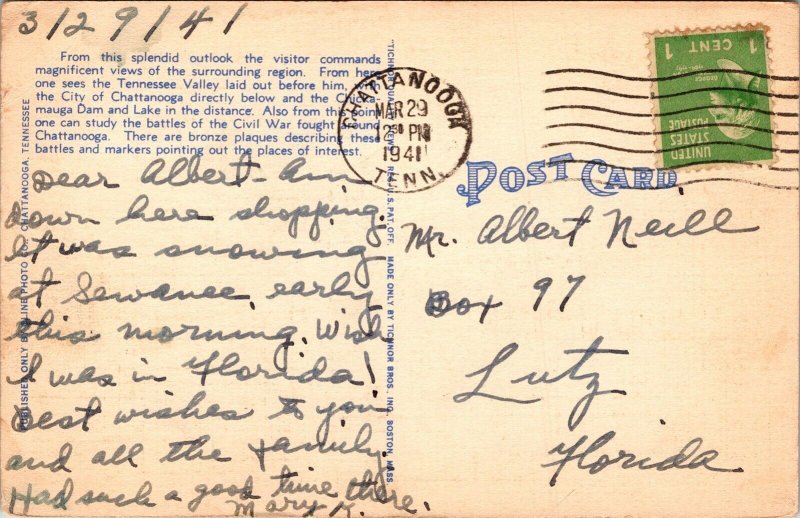 3/29/41
From this splendid outlook the visitor commands
magnificent views of the surrounding region. From here
one sees the Tennessee Valley laid out before him,
the City of Chattanooga directly below and the Chicka-
mauga Dam and Lake in the distance. Also from the point
one can study the battles of the Civil War fought around
Chattanooga. There are bronze plaques describing these
battles and markers pointing out the places of interest.
Dear Albert - Am
down here shopping.
It was snowing
at Sewanee early
this morning. Wish
I was in Florida!
Best wishes to you
and all the family.
Had such a good time there.
Mary K.
PUBLISHED ONLY BY LINE PHOTO CO., CHATTANOOGA, TENNESSEE
REG. U.S. PAT. OFF. MADE ONLY BY TICHNOR BROS. INC. BOSTON, MASS.
CHATTANOOGA
MAR 29
PM
1941
TENN.
1 CENT 1
UNITED
STATES
POSTAGE
POST CARD
Mr. Albert Neill
Box 97
Lutz
Florida